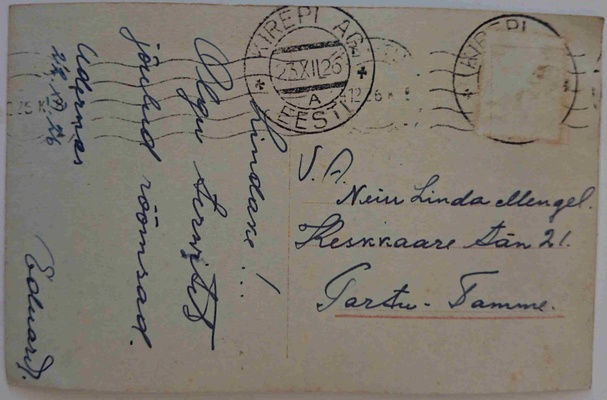 KIREPI AG.
23.XII.26
A
EESTI
KIREPI
Lindale! ...
Olgu tervist
jõulud röömsad.
Udernas
22 XII 26
Eduard.
V. A.
Neiu Linda Mengel.
Keskkaare tän 21.
Tartu-Tamme.